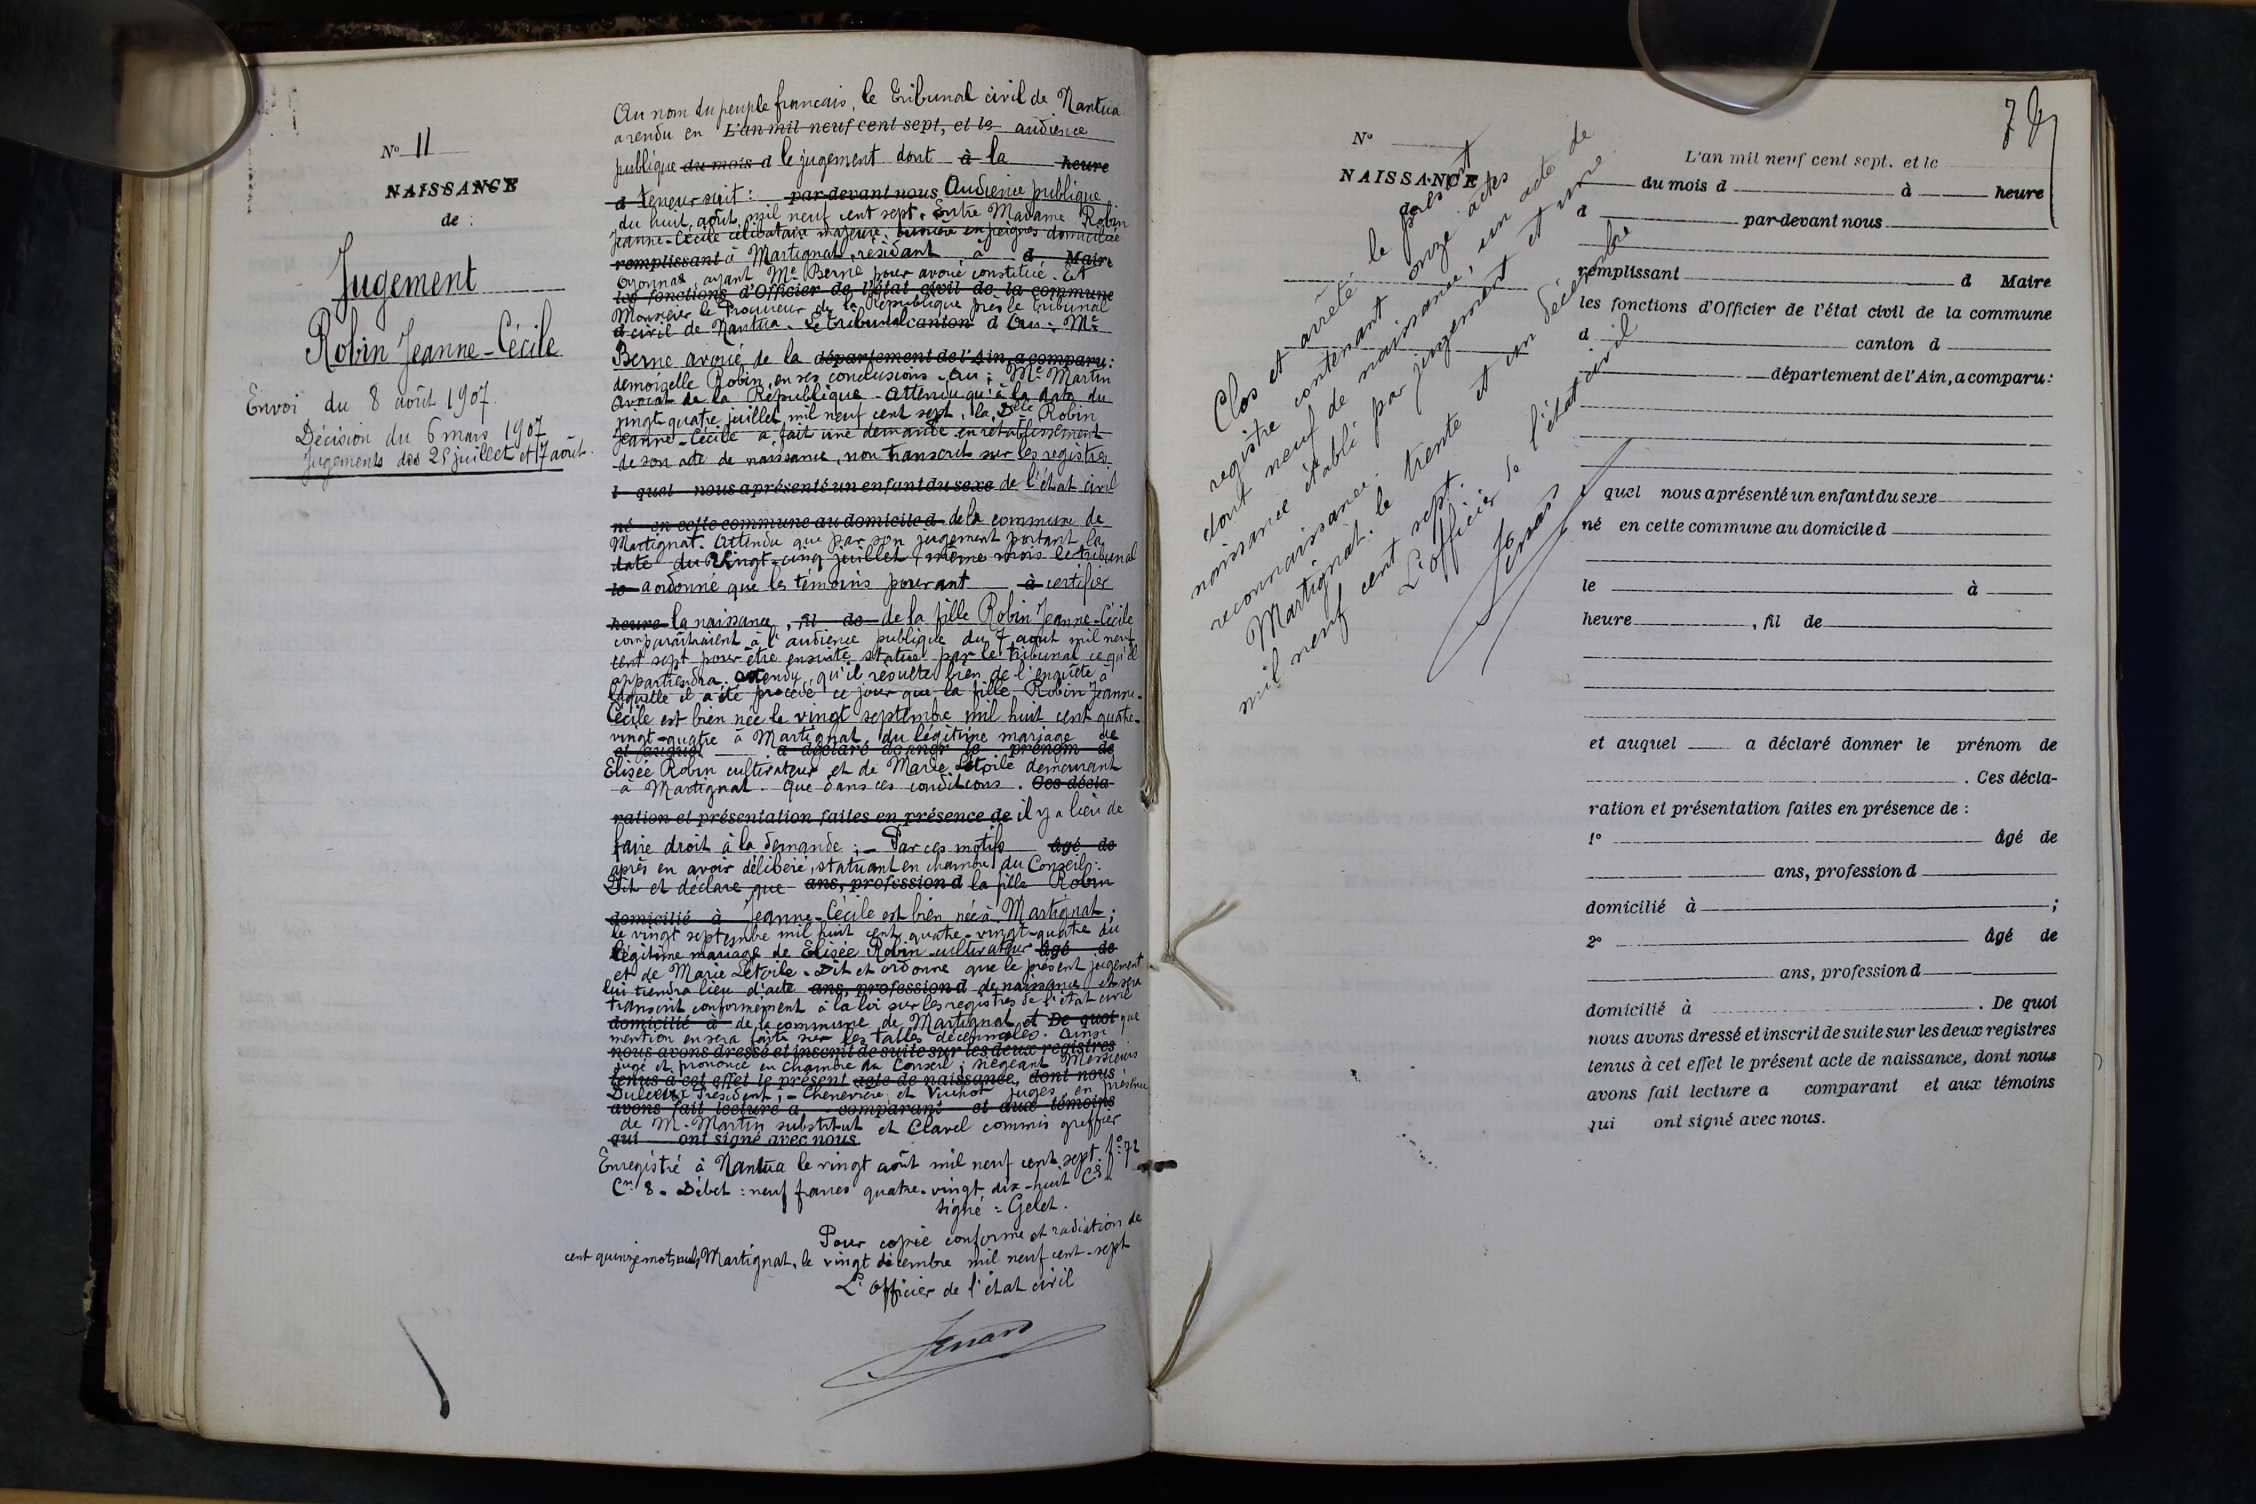 N° 11
NAISSANCE
de :
Jugement
Robin Jeanne-Cécile
Envoi du 8 août 1907.
Décision du 6 mars 1907
Jugements des 25 juillet et 17 août.
Au nom du peuple francais, le Tribunal civil de Nantua
a rendu en L'an mil neuf cent sept, et le audience
publique du mois d le jugement dont à la heure
d teneur suit : par-devant nous Audience publique
du huit août mil neuf cent sept. Entre Madame Robin
Jeanne-Cécile célibataire majeure, ouvrière en peignes domiciliée
remplissant à Martignat, résidant à d Maire
Oyonnax, ayant Me Berne pour avoué constitué. Et
les fonctions d'Officier de l'état civil de la commune
Monsieur le Procureur de la République près le tribunal
d civil de Nantua. Le Tribunal canton d Ouï : Me
Berne avoué de la département de l'Ain, a comparu :
demoiselle Robin, en ses conclusions. Ouï : Me Martin
avocat de la République. Attendu qu'à la date du
vingt-quatre juillet mil neuf cent sept, la Delle Robin
Jeanne-Cécile a fait une demande en rétablissement
de son acte de naissance, non transcrit sur les registres
l quel nous a présenté un enfant du sexe de l'état civil
né en cette commune au domicile d de la commune de
Martignat. Attendu que par son jugement portant la
date du vingt-cinq juillet, même mois le tribunal
le a ordonné que les témoins pourant à certifier
heure la naissance, fil de de la fille Robin Jeanne-Cécile
comparaîtraient à l'audience publique du 7 août mil neuf
cent sept pour être ensuite statué par le tribunal ce qu'il
appartiendra. Attendu qu'il résulte bien de l'enquête à
laquelle il a été procédé ce jour que la fille Robin Jeanne-
Cécile est bien née le vingt septembre mil huit cent quatre-
vingt-quatre à Martignat, du légitime mariage de
et auquel a déclaré donner le prénom de
Elisée Robin cultivateur et de Marie Létoile demeurant
à Martignat. Que dans ces conditions. Ces décla-
ration et présentation faites en présence de il y a lieu de
faire droit à la demande ; - Par ces motifs âgé de
après en avoir délibéré, statuant en chambre du Conseil :
Dit et déclare que ans, profession d la fille Robin
domicilié à Jeanne-Cécile est bien née à Martignat ;
le vingt septembre mil huit cent quatre-vingt-quatre du
légitime mariage de Elisée Robin cultivateur âgé de
et de Marie Létoile. Dit et ordonne que le présent jugement
lui tiendra lieu d'acte ans, profession d de naissance et sera
transcrit conformément à la loi sur les registres de l'état civil
domicilié à de la commune de Martignat et De quoi que
mention en sera faite sur les tables décennales. Ainsi
nous avons dressé et inscrit de suite sur les deux registres
jugé et prononcé en chambre du Conseil ; siégeant Messieurs
tenus à cet effet le présent acte de naissance, dont nous
Président ; - Chenevière et juges, en présence
avons fait lecture a comparant et aux témoins
de M. Martin substitut et Clavel commis greffier
qui ont signé avec nous.
Enregistré à Nantua le vingt août mil neuf cent sept. f° 72
Cse 8. Débet : neuf francs quatre-vingt dix-huit Cs
signé = Gelet.
Pour copie conforme et radiation de
cent quinze mots nuls Martignat, le vingt décembre mil neuf cent-sept
L'Officier de l'état civil
N°
NAISSANCE
de
Clos et arrêté le présent
registre contenant onze actes
dont neuf de naissance, un acte de
naissance établi par jugement et une
reconnaissance.
Martignat. le trente et un décembre
mil neuf cent sept.
L'officier de l'état civil
L'an mil neuf cent sept. et le
du mois d à heure
d par-devant nous
remplissant d Maire
les fonctions d'Officier de l'état civil de la commune
d canton d
département de l'Ain, a comparu :
quel nous a présenté un enfant du sexe
né en cette commune au domicile d
le à
heure , fil de
et auquel a déclaré donner le prénom de
. Ces décla-
ration et présentation faites en présence de :
1° âgé de
ans, profession d
domicilié à ;
2° âgé de
ans, profession d
domicilié à . De quoi
nous avons dressé et inscrit de suite sur les deux registres
tenus à cet effet le présent acte de naissance, dont nous
avons fait lecture a comparant et aux témoins
qui ont signé avec nous.